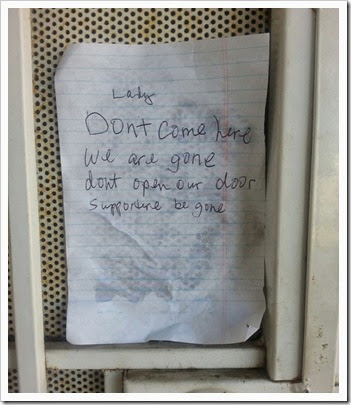 Lady
Dont come here
We are gone
dont open our door
Supporture be gone